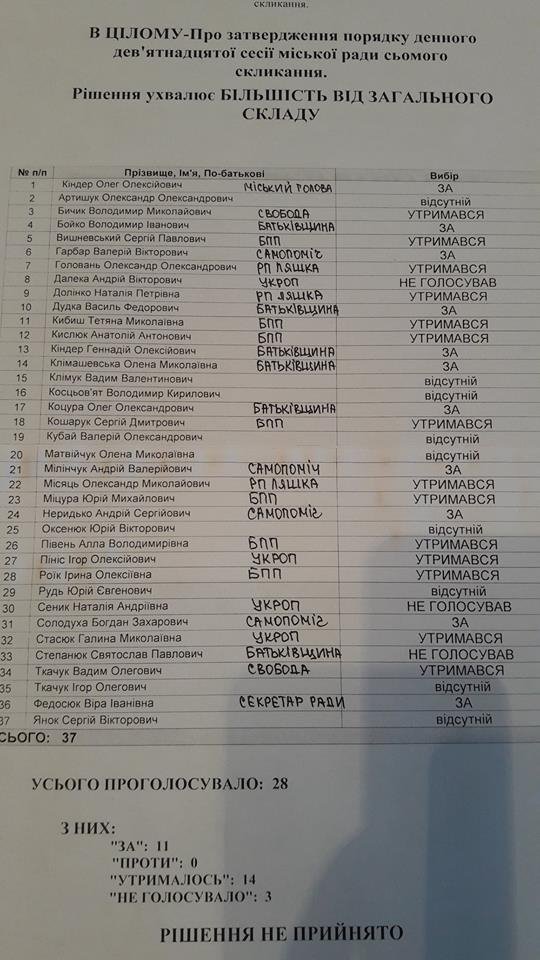 скликання.
В ЦІЛОМУ-Про затвердження порядку денного
дев'ятнадцятої сесії міської ради сьомого
скликання.
Рішення ухвалює БІЛЬШІСТЬ ВІД ЗАГАЛЬНОГО
СКЛАДУ
№ п/п Прізвище, Ім'я, По-батькові Вибір
1 Кіндер Олег Олексійович МІСЬКИЙ ГОЛОВА ЗА
2 Артишук Олександр Олександрович відсутній
3 Бичик Володимир Миколайович СВОБОДА УТРИМАВСЯ
4 Бойко Володимир Іванович БАТЬКІВЩИНА ЗА
5 Вишневський Сергій Павлович БПП УТРИМАВСЯ
6 Гарбар Валерій Вікторович САМОПОМІЧ ЗА
7 Головань Олександр Олександрович РП ЛЯШКА УТРИМАВСЯ
8 Далека Андрій Вікторович УКРОП НЕ ГОЛОСУВАВ
9 Долінко Наталія Петрівна РП ЛЯШКА УТРИМАВСЯ
10 Дудка Василь Федорович БАТЬКІВЩИНА ЗА
11 Кибиш Тетяна Миколаївна БПП УТРИМАВСЯ
12 Кислюк Анатолій Антонович БПП УТРИМАВСЯ
13 Кіндер Геннадій Олексійович БАТЬКІВЩИНА ЗА
14 Клімашевська Олена Миколаївна БАТЬКІВЩИНА ЗА
15 Клімук Вадим Валентинович відсутній
16 Косцьов'ят Володимир Кирилович відсутній
17 Коцура Олег Олександрович БАТЬКІВЩИНА ЗА
18 Кошарук Сергій Дмитрович БПП УТРИМАВСЯ
19 Кубай Валерій Олександрович відсутній
20 Матвійчук Олена Миколаївна відсутній
21 Мілінчук Андрій Валерійович САМОПОМІЧ ЗА
22 Місяць Олександр Миколайович РП ЛЯШКА УТРИМАВСЯ
23 Міцура Юрій Михайлович БПП УТРИМАВСЯ
24 Неридько Андрій Сергійович САМОПОМІЧ ЗА
25 Оксенюк Юрій Вікторович відсутній
26 Півень Алла Володимирівна БПП УТРИМАВСЯ
27 Пініс Ігор Олексійович УКРОП УТРИМАВСЯ
28 Роїк Ірина Олексіївна БПП УТРИМАВСЯ
29 Рудь Юрій Євгенович відсутній
30 Сеник Наталія Андріївна УКРОП НЕ ГОЛОСУВАВ
31 Солодуха Богдан Захарович САМОПОМІЧ ЗА
32 Стасюк Галина Миколаївна УКРОП УТРИМАВСЯ
33 Степанюк Святослав Павлович БАТЬКІВЩИНА НЕ ГОЛОСУВАВ
34 Ткачук Вадим Олегович СВОБОДА УТРИМАВСЯ
35 Ткачук Ігор Олегович відсутній
36 Федосюк Віра Іванівна СЕКРЕТАР РАДИ ЗА
37 Янок Сергій Вікторович відсутній
СЬОГО: 37
УСЬОГО ПРОГОЛОСУВАЛО: 28
З НИХ:
"ЗА": 11
"ПРОТИ": 0
"УТРИМАЛОСЬ": 14
"НЕ ГОЛОСУВАЛО": 3
РІШЕННЯ НЕ ПРИЙНЯТО